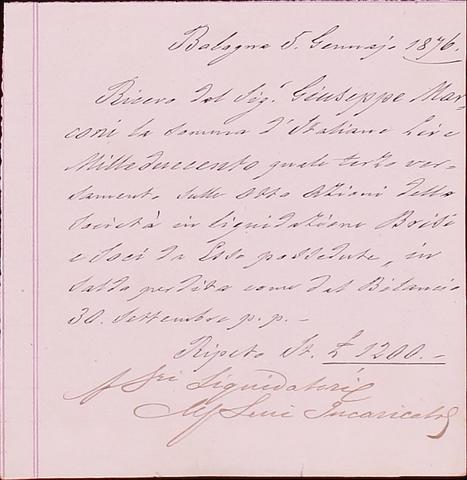 Bologna 5. Gennajo 1876.
Ricevo dal Sig.r Giuseppe Mar-
coni la somma d'Italiane Lire
Milleduecento quale terzo ver-
samento sulle otto azioni della
Società in liquidazione
e Soci da Esso possedute, in
saldo perdita come dal Bilancio
30. Settembre p.p. –
Ripeto It. £ 1200.–
Liquidatori
Incaricato